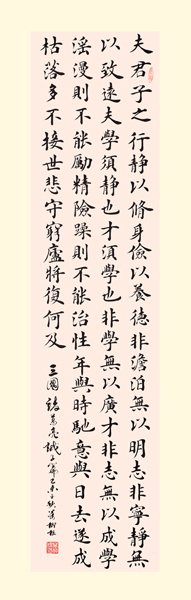 夫君子之行靜以脩身儉以養德非澹泊無以明志非寧靜無
以致遠夫學須靜也才須學也非學無以廣才非志無以成學
淫漫則不能勵精險躁則不能治性年與時馳意與日去遂成
枯落多不接世悲守窮廬將復何及
三國諸葛亮誡子